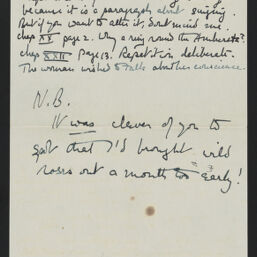 because it is a paragraph about singing.
But if you want to alter it, don't mind me.
chap XX page 2. Why a ring round the
chap XXII Page 13. Repetition deliberate.
The woman wished to talk about her conscience.
N.B.
It was clever of you to
spot that I'd brought wild
roses out a month too early!